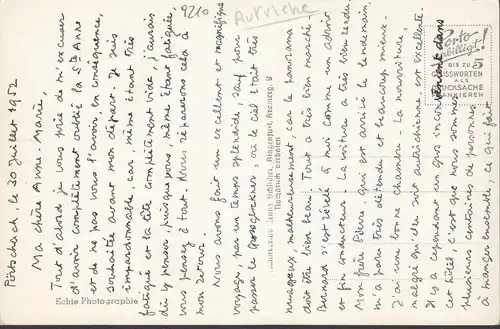 9210
Autriche
Pörtschach, le 30 Juillet 1952
Ma chère Anne-Marie,
Tout d'abord je vous prie de m'excuser
d'avoir complètement oublié la Ste Anne
et de ne pas vous l'avoir, en conséquence,
souhaitée avant mon départ. Je suis
impardonnable car même étant très
fatigué et la tête complètement vide j'aurais
dû y penser, puisque vous, même étant fatiguée,
vous pensez à tout. Nous réparerons cela à
mon retour.
Nous avons fait un excellent et magnifique
voyage, par un temps splendide, sauf pour
passer le grossglockner, où le ciel était très
nuageux malheureusement, car le panorama
doit être bien beau. Tout a très bien marché
Bernard s'est révélé à moi comme un adroit
et fin conducteur. La voiture a très bien rendu
Mon frère Pierre qui est arrivé le lendemain,
m'a paru très détendu et beaucoup mieux.
J'ai une bonne chambre. La nourriture,
malgré qu'elle soit autrichienne est excellente
Il y a cependant un gros inconvénient dans
cet hôtel, c'est que nous sommes
plusieurs centaines de personnes
à manger ensemble ce qui fait
Echte Photographie
Klagenfurt,
Nachdruck verboten
Porto
verbilligt!
BIS ZU 5
GRUSSWORTEN
ALS
DRUCKSACHE
FRANKIEREN